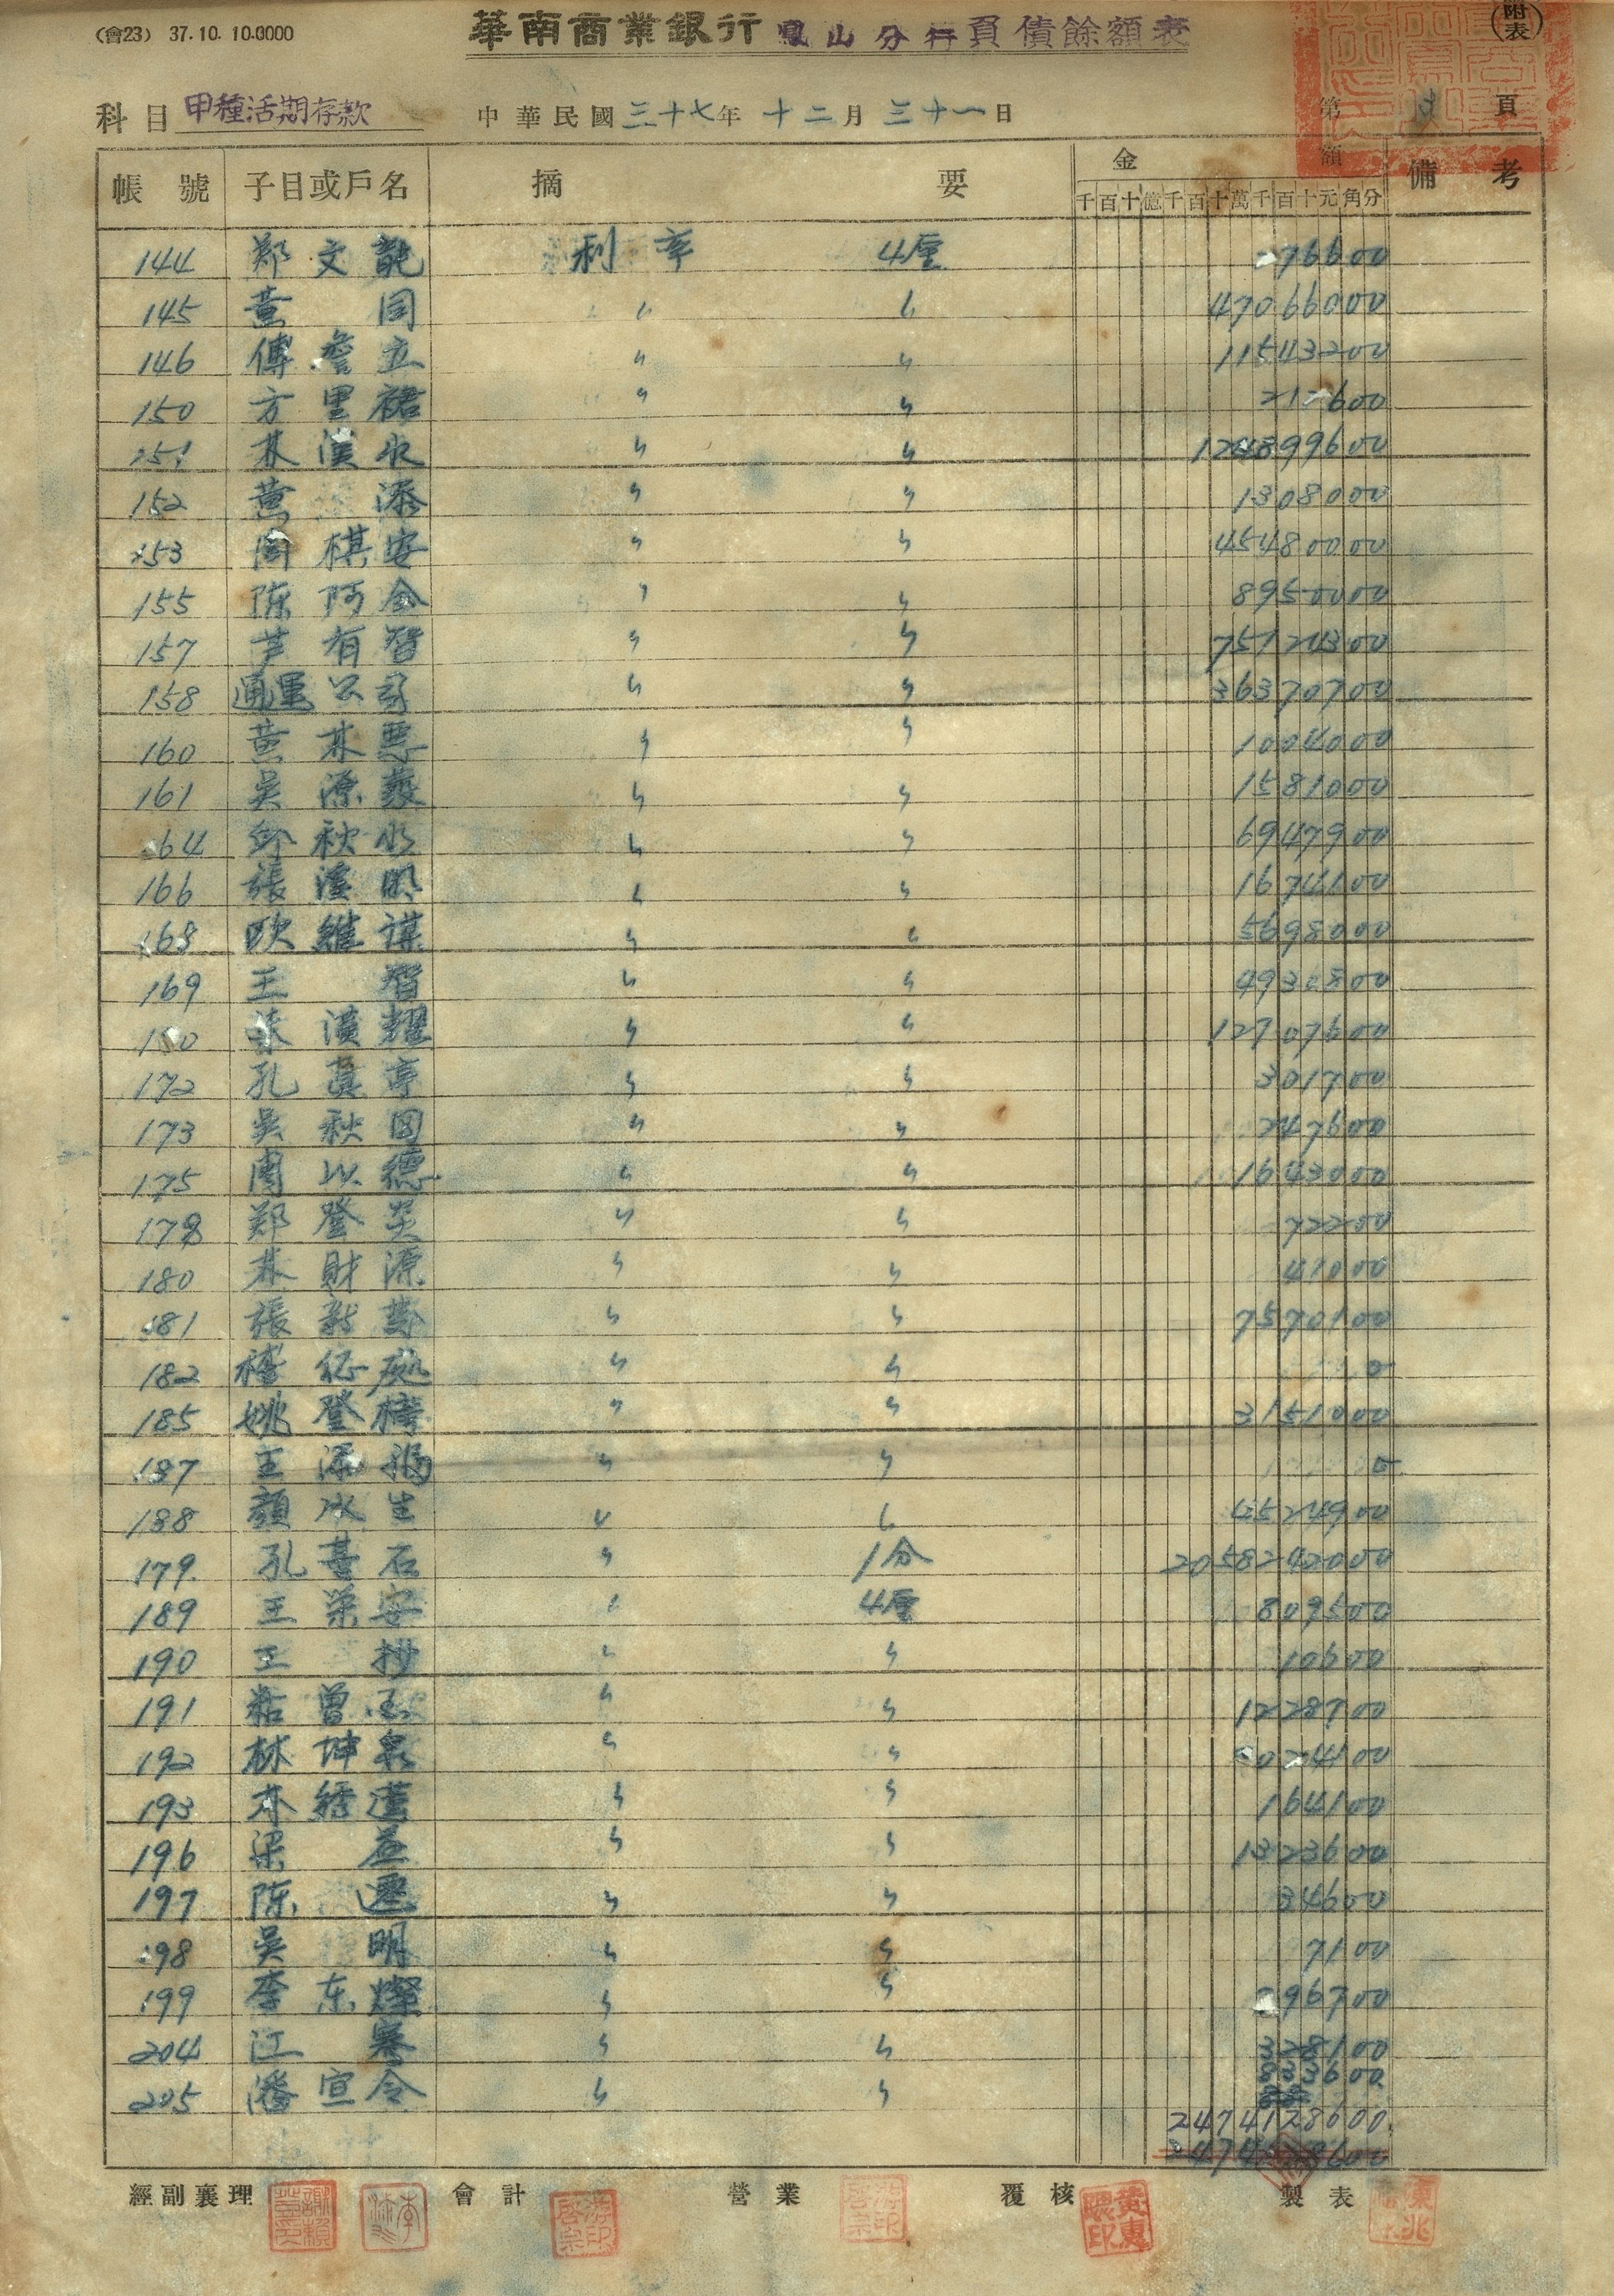 (會23) 37.10.10.0000 華南商業銀行鳳山分行負債餘額表 (附表)
科目 甲種活期存款 中華民國三十七年十二月三十一日 第 頁
帳號 子目或戶名 摘要 金額 備考
千百十億千百十萬千百十元角分
144 郑文 利率 4厘 76600
145 黄同 〃 〃 4706600
146 傅詹立 〃 〃 11543200
150 方里裙 〃 〃 600
林漢水 〃 〃 99600
152 黄添 〃 〃 1308000
153 周棋安 〃 〃 45480000
155 陈阿金 〃 〃 8950000
157 芦有智 〃 〃 75124300
158 通運公司 〃 〃 36370700
160 黄林惡 〃 〃 1004000
161 吳源 〃 〃 1581000
164 秋水 〃 〃 6947900
166 張漢明 〃 〃 1674100
168 欧維謀 〃 〃 5698000
169 王智 〃 〃 00
漢耀 〃 〃 12707600
172 孔真亭 〃 〃 301700
173 吳秋图 〃 〃 247600
175 周以德 〃 〃 1643000
郑登炎 〃 〃 72200
180 林財源 〃 〃 41000
181 張新 〃 〃 7570100
182 〃 〃 0
185 姚登橋 〃 〃 3151000
187 王添 〃 〃 0
188 顏水生 〃 〃 4524900
179. 孔喜石 〃 1分 205824200
189 王荣安 〃 4厘 809500
190 王抄 〃 〃 10600
191 粘曾玉 〃 〃 1228700
192 林坤泉 〃 〃 24100
193 林 〃 〃 164100
196 梁益 〃 〃 1323600
197 陈遷 〃 〃 34600
198 吳明 〃 〃 7100
199 李东燦 〃 〃 96700
204 江寒 〃 〃 328100
205 潘宣令 〃 〃 833600
2474128600
經副襄理 會計 營業 覆核 製表